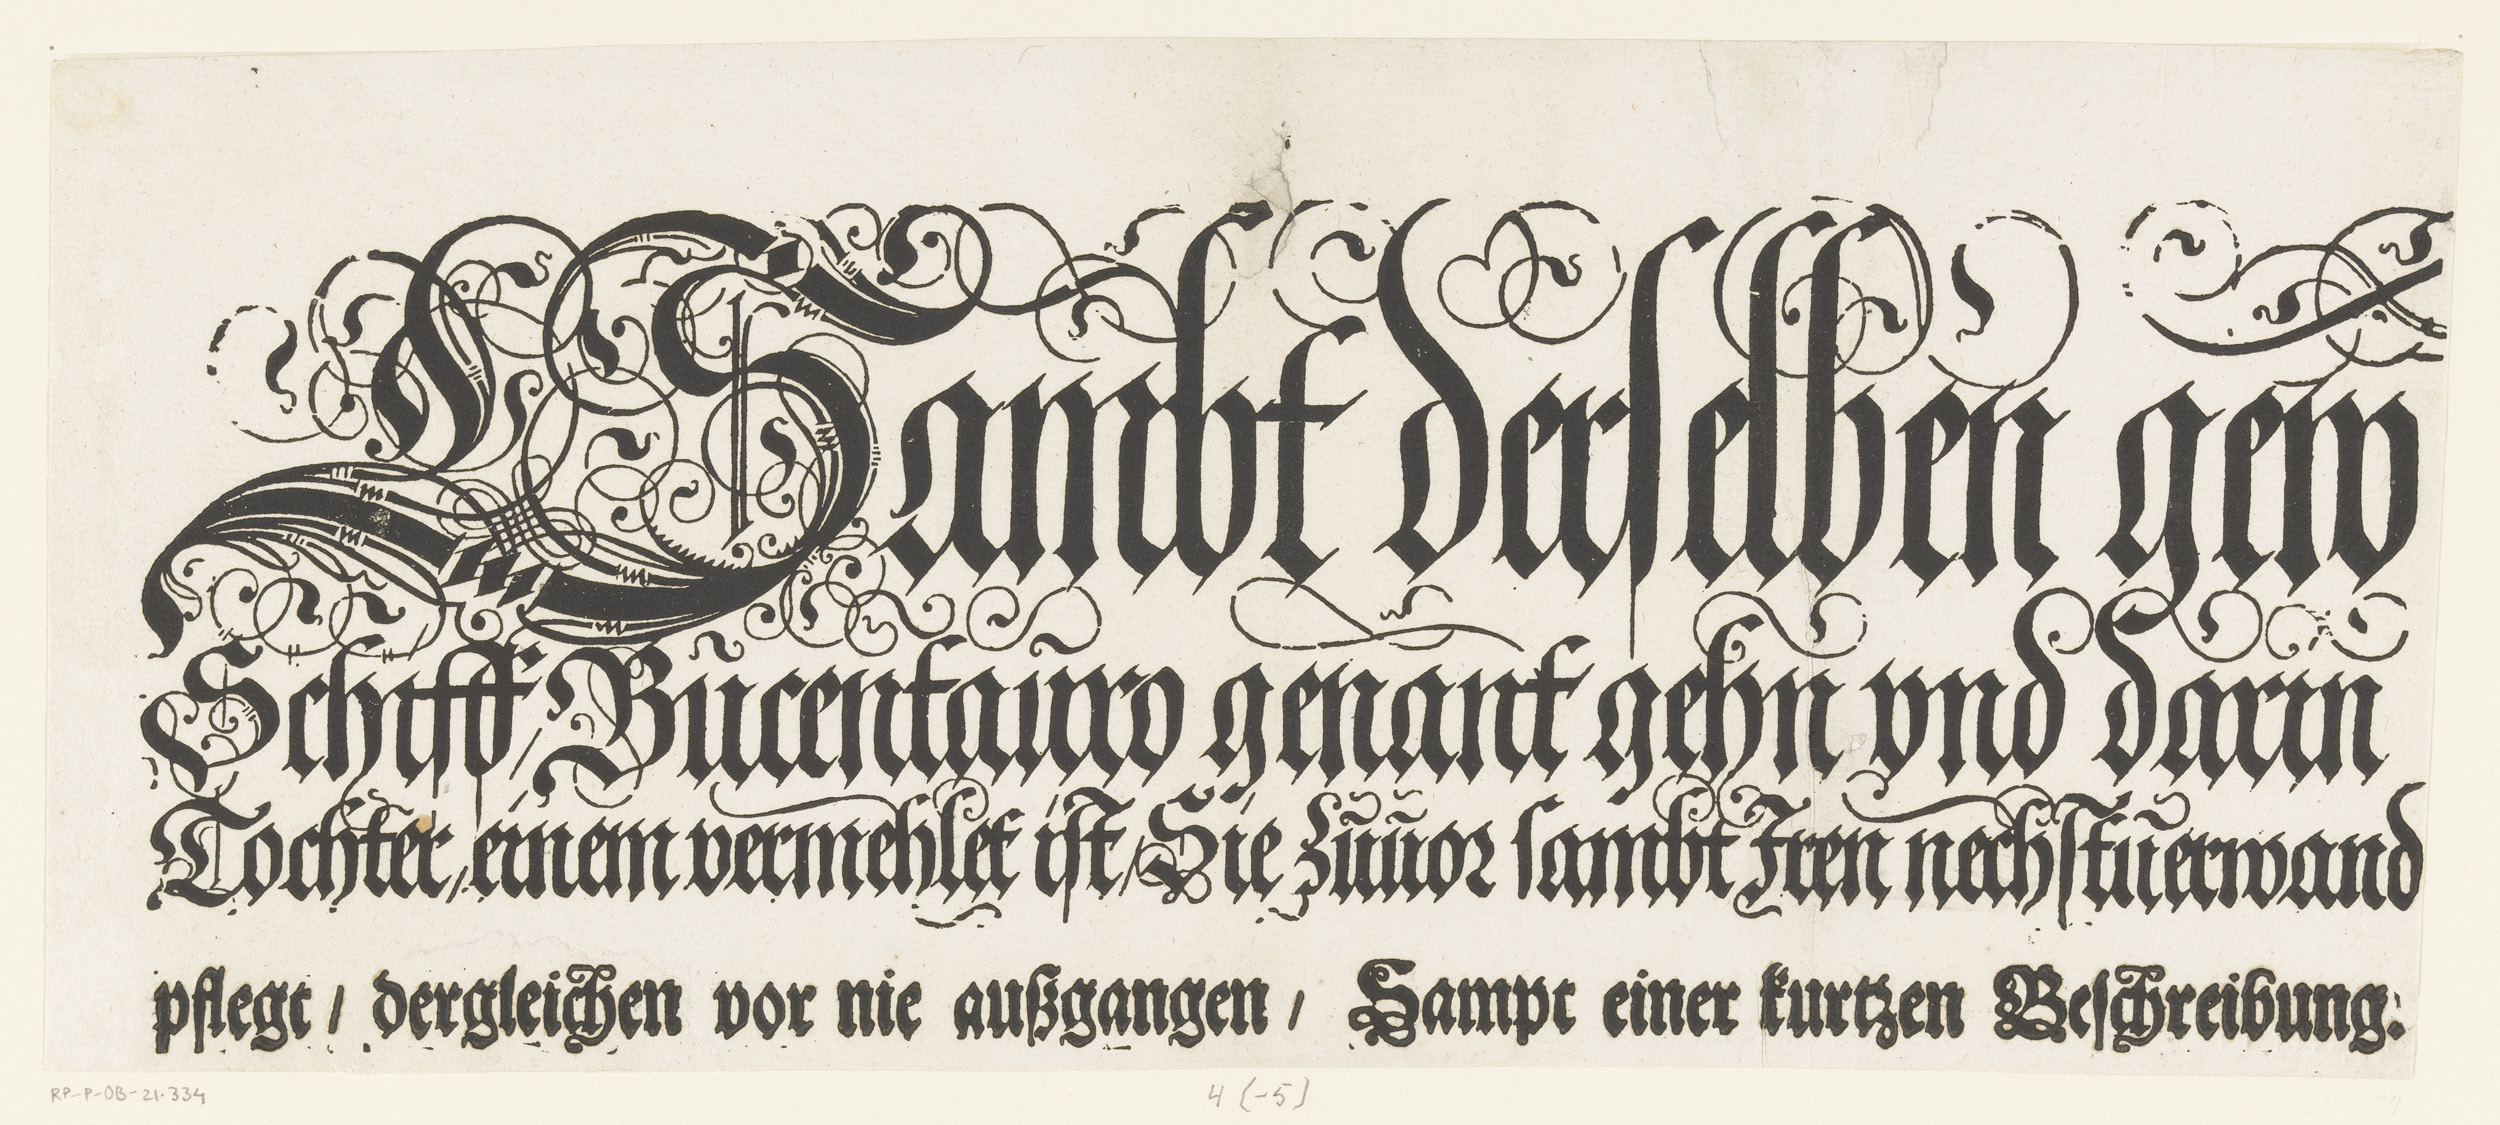 Sambt derselben gew
Schiff / Bucentauro genant gehn vnd darin
Tochter, einem vermehlet ist / Sie zuuor sambt Iren nechstuerwand
pflegt / dergleichen vor nie außgangen / Sampt einer kurtzen Beschreibung:
RP-P-OB-21.334
4 (-5)